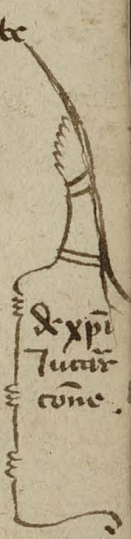 te
de xpi
Incar
cone .